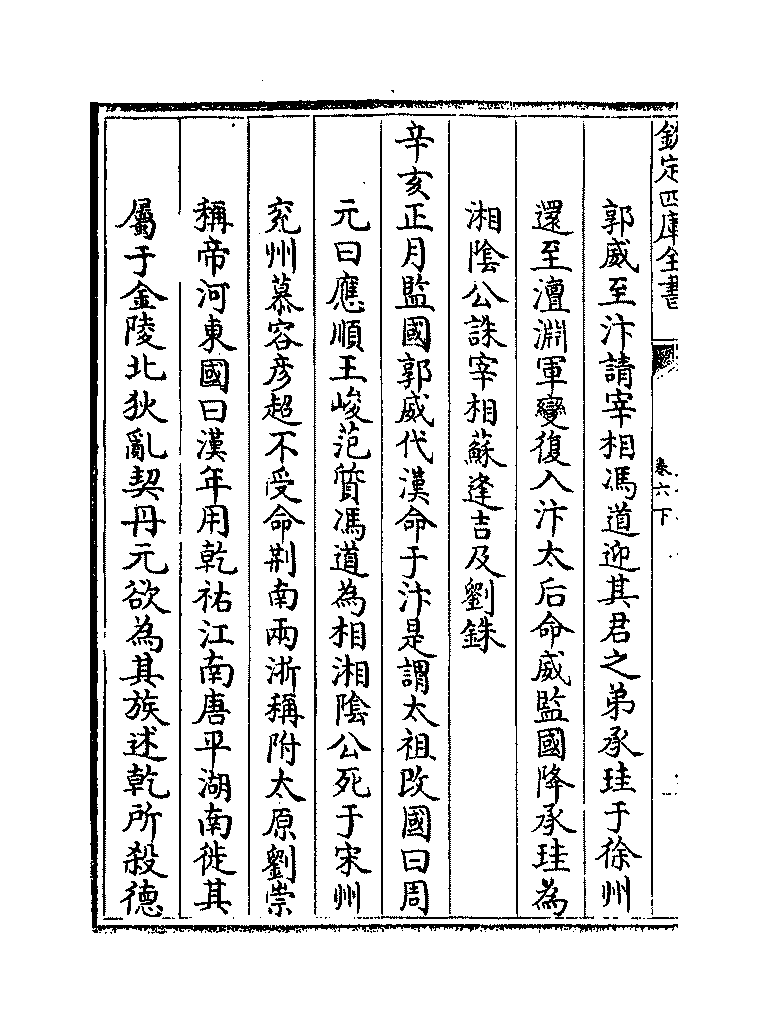 欽定四庫全書
卷六下
郭威至汴請宰相馮道迎其君之弟承珪于徐州
還至澶淵軍變復入汴太后命威監國降承珪為
湘隂公誅宰相蘇逢吉及劉銖
辛亥正月監國郭威代漢命于汴是謂太祖改國曰周
元曰應順王峻范質馮道為相湘隂公死于宋州
兖州慕容彦超不受命荆南兩浙稱附太原劉崇
稱帝河東國曰漢年用乾祐江南唐平湖南徙其
屬于金陵北狄亂契丹元欲為其族述乾所殺德